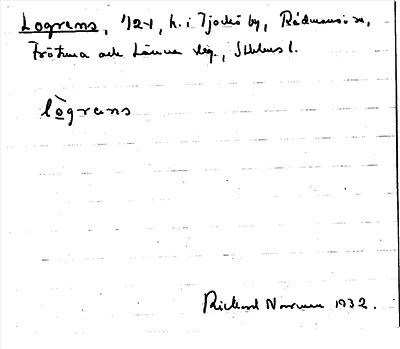 Lograns, 1/24, h. i Tjockö by, Rådmansö sn,
Frötuna och Länna skg., Sthlms l.
lògrans
Rickard Norrman 1932.